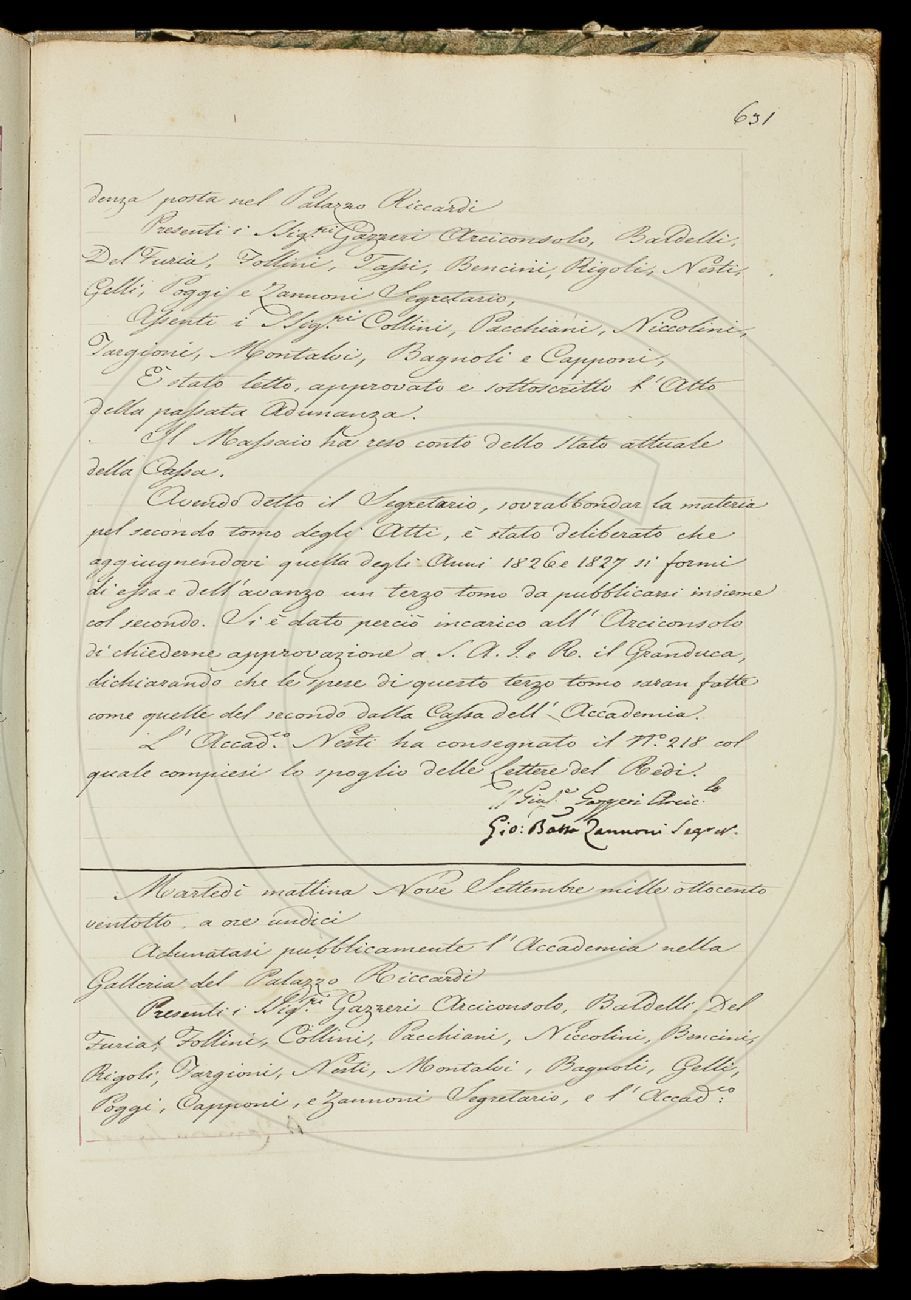 631
denza posta nel Palazzo Riccardi
Presenti i SSig.ri Gazzeri Arciconsolo, Baldelli,
Del Furia, Follini, Tassi, Bencini, Rigoli, Nesti,
Gelli, Poggi e Zannoni Segretario,
Assenti i SSig.ri Collini, Pacchiani, Niccolini,
Targioni, Montalvi, Bagnoli e Capponi,
È stato letto, approvato e sottoscritto l'Atto
della passata Adunanza.
Il Massaio ha reso conto dello stato attuale
della Cassa.
Avendo detto il Segretario, sovrabbondar la materia
pel secondo tomo degli Atti, è stato deliberato che
aggiugnendovi quella degli Anni 1826 e 1827 si formi
di essa e dell'avanzo un terzo tomo da pubblicarsi insieme
col secondo. Si è dato perciò incarico all'Arciconsolo
di chiederne approvazione a S. A. I. e R. il Granduca,
dichiarando che le spese di questo terzo tomo saran fatte
come quelle del secondo dalla Cassa dell'Accademia.
L'Accad.co Nesti ha consegnato il N.o 218 col
quale compiesi lo spoglio delle Lettere del Redi.
Gius.e Gazzeri Arcic.lo
Gio: Batta Zannoni Segret.
Martedì mattina Nove Settembre mille ottocento
ventotto a ore undici
Adunatasi pubblicamente l'Accademia nella
Galleria del Palazzo Riccardi
Presenti i SSig.ri Gazzeri Arciconsolo, Baldelli, Del
Furia, Follini, Collini, Pacchiani, Niccolini, Bencini,
Rigoli, Targioni, Nesti, Montalvi, Bagnoli, Gelli,
Poggi, Capponi, e Zannoni Segretario, e l'Accad.co: